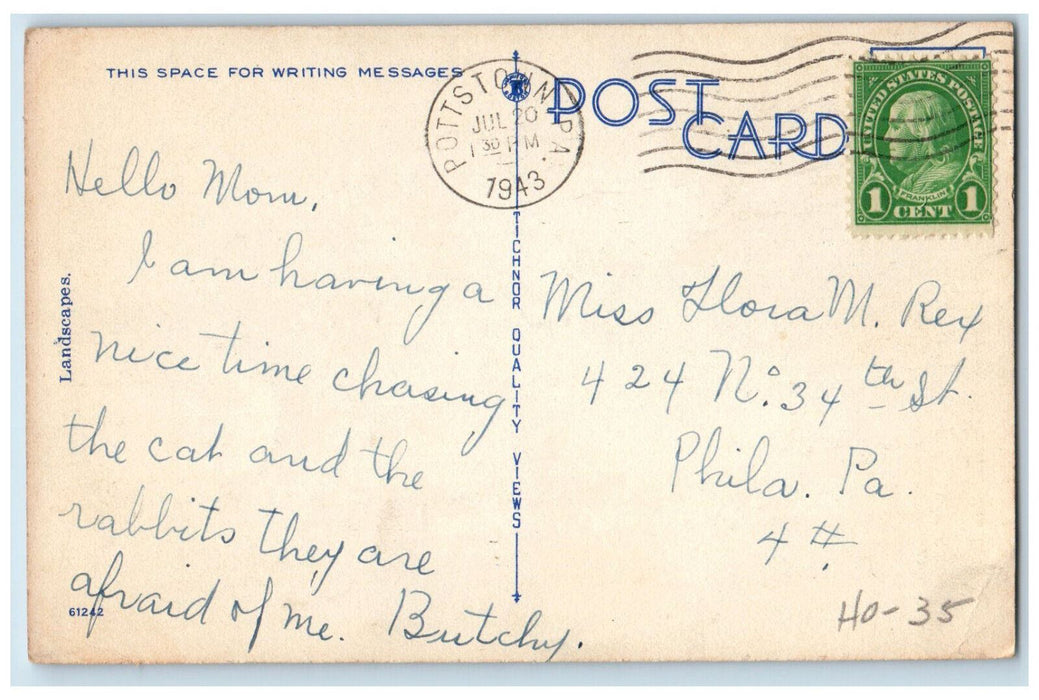 THIS SPACE FOR WRITING MESSAGES
POST
CARD
POTTSTOWN PA.
JUL 20
1 30 PM
1943
UNITED STATES POSTAGE
FRANKLIN
1 CENT 1
Hello Mom,
I am having a
nice time chasing
the cat and the
rabbits they are
afraid of me. Butchy.
Landscapes.
61242
TICHNOR QUALITY VIEWS
Miss Flora M. Rex
424 No. 34th St.
Phila. Pa.
4 #
HO-35